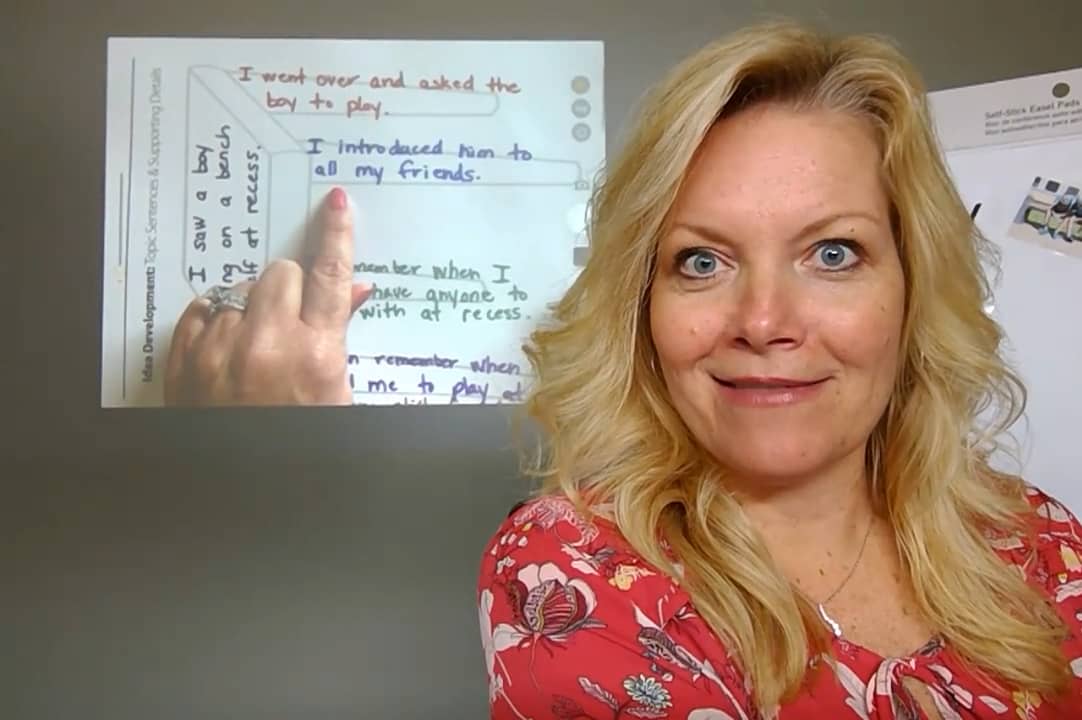 Idea Development: Topic Sentences & Supporting Details
I saw a boy
on a bench
at recess.
I went over and asked the
boy to play.
I introduced him to
all my friends.
when I
have anyone to
with at recess.
remember when
me to play at
Self-Stick Easel Pads